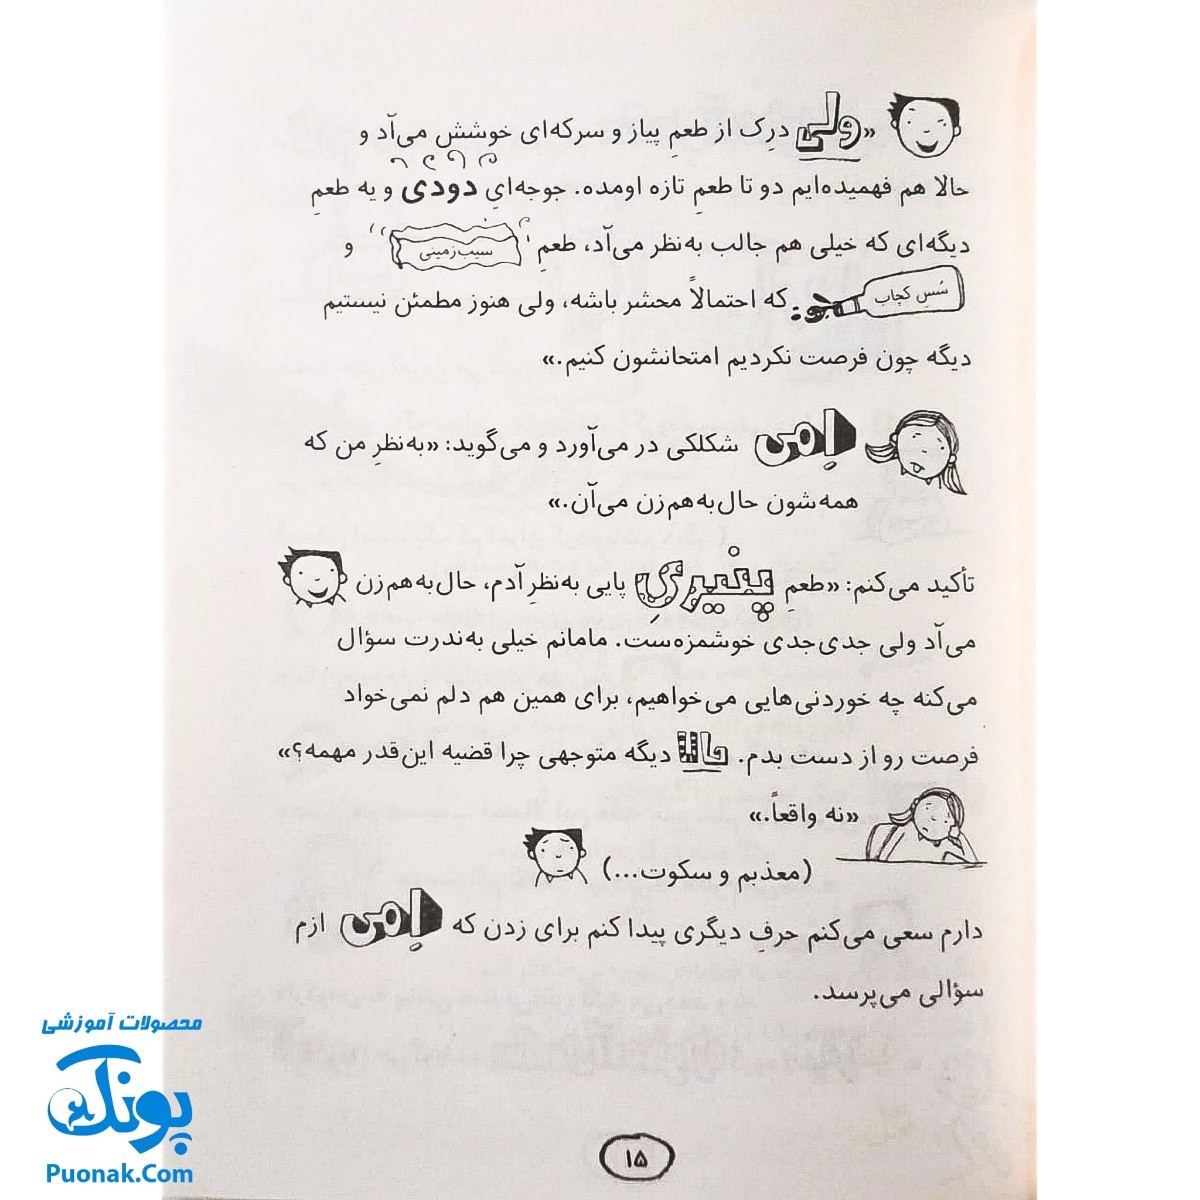 «ولی درِک از طعمِ پیاز و سرکه‌ای خوشش می‌آد و
حالا هم فهمیده‌ایم دو تا طعمِ تازه اومده. جوجه‌ایِ دودی و یه طعمِ
دیگه‌ای که خیلی هم جالب به‌نظر می‌آد، طعمِ سیب‌زمینی و
سُسِ کچاپ که احتمالاً محشر باشه، ولی هنوز مطمئن نیستیم
دیگه چون فرصت نکردیم امتحانشون کنیم.»
اِمی شکلکی در می‌آورد و می‌گوید: «به‌نظرِ من که
همه‌شون حال‌به‌هم‌زن می‌آن.»
تأکید می‌کنم: «طعمِ پنیریِ پایی به‌نظرِ آدم، حال‌به‌هم‌زن
می‌آد ولی جدی‌جدی خوشمزه‌ست. مامانم خیلی به‌ندرت سؤال
می‌کنه چه خوردنی‌هایی می‌خواهیم، برای همین هم دلم نمی‌خواد
فرصت رو از دست بدم. حالا دیگه متوجهی چرا قضیه این‌قدر مهمه؟»
«نه واقعاً.»
(معذبم و سکوت...)
دارم سعی می‌کنم حرفِ دیگری پیدا کنم برای زدن که اِمی ازم
سؤالی می‌پرسد.
محصولات آموزشی
پونک
Puonak.Com
۱۵